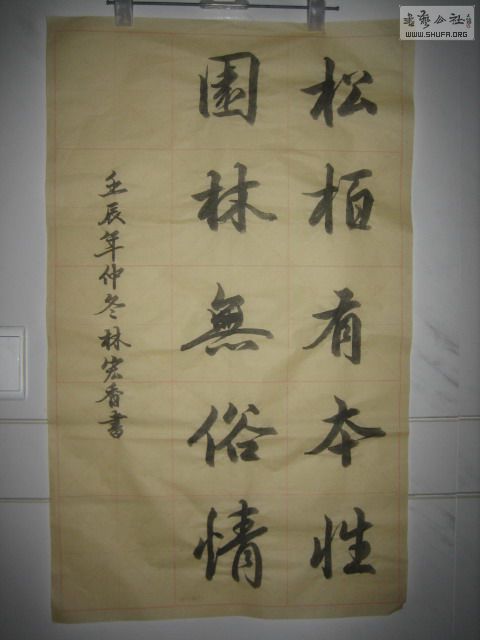 松柏有本性
園林無俗情
壬辰年仲冬林宏香書
書藝公社
WWW.SHUFA.ORG